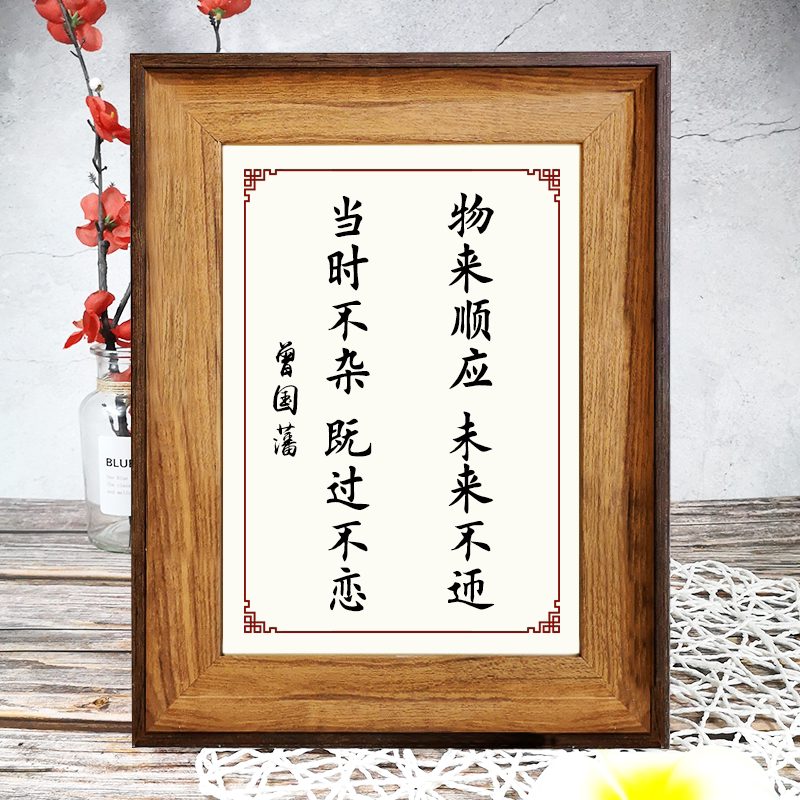 物来顺应 未来不迊
当时不杂 既过不恋
曾国藩
BLUE